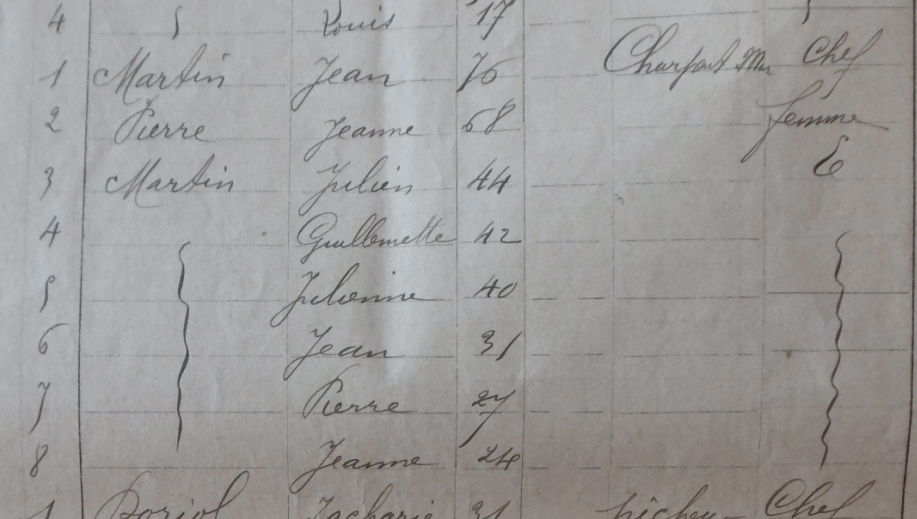 4 Louis 17
1 Martin Jean 76 Charpent Mar Chef
2 Pierre Jeanne 68 femme
3 Martin Julien 44 E
4 Guillemette 42
5 Julienne 40
6 Jean 31
7 Pierre 27
8 Jeanne 24
1 Zacharie 31 pêcheur Chef